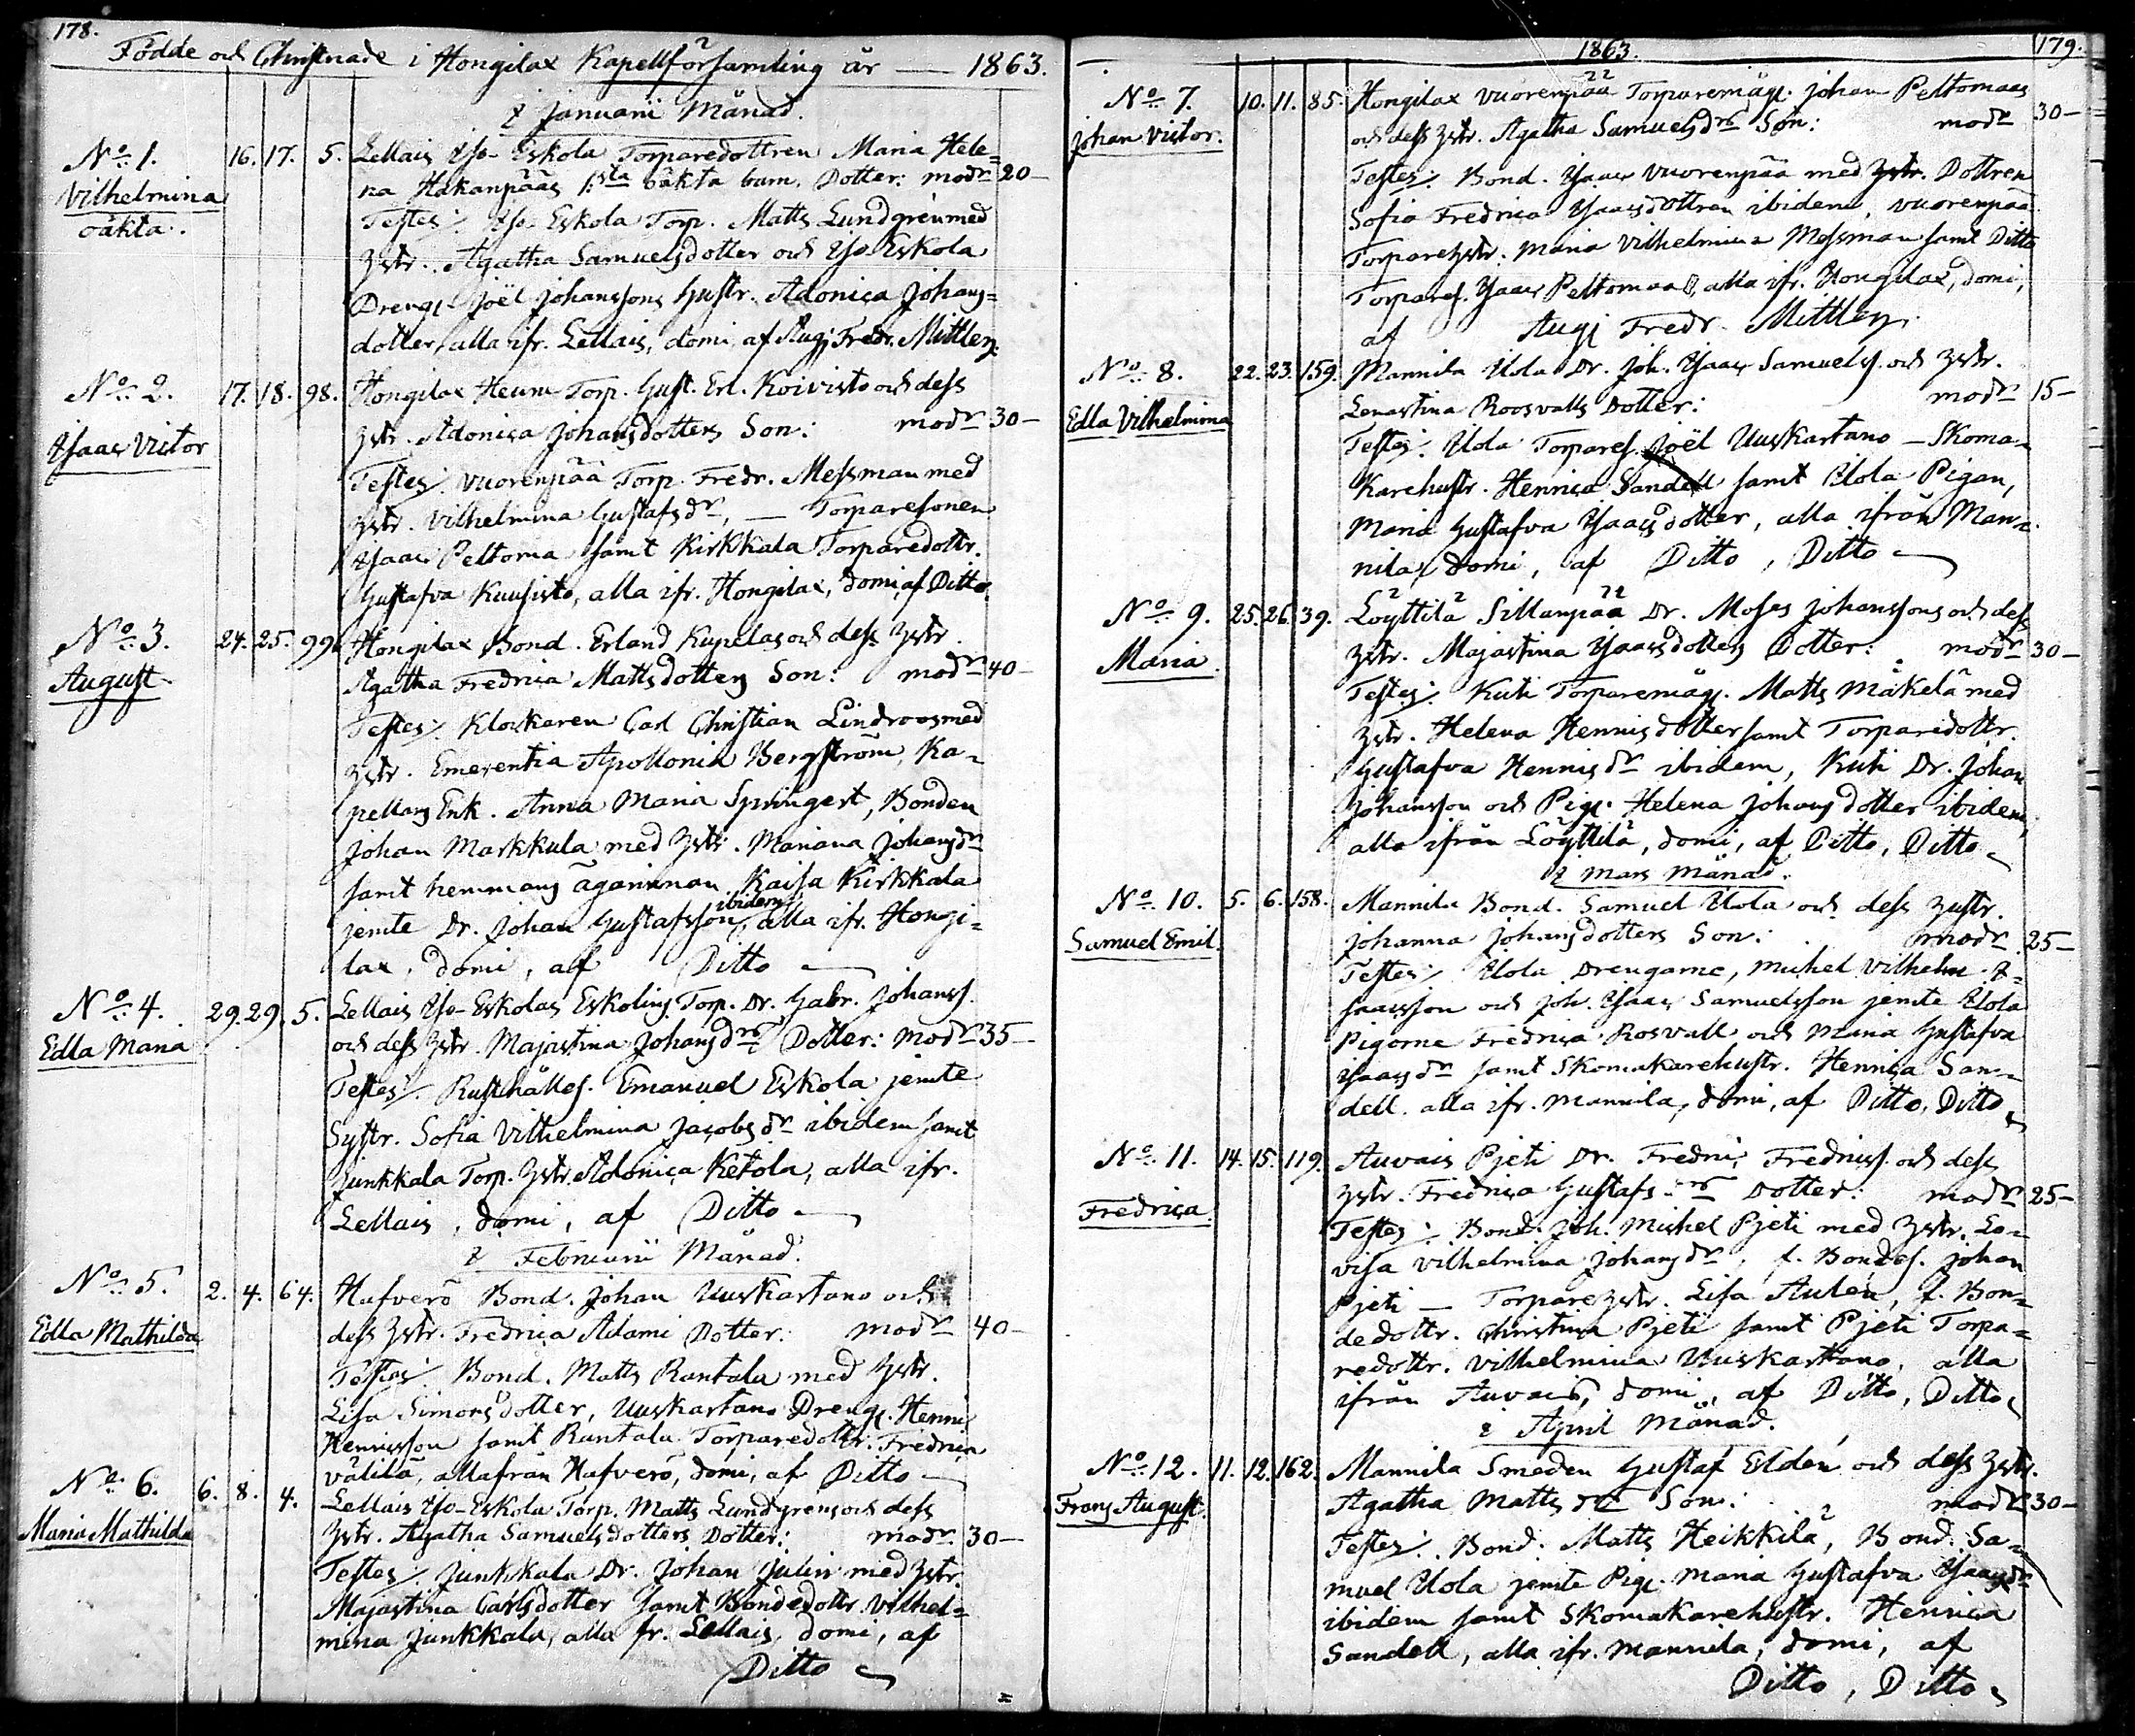 178.
Födde och Christnade i Hongilax Kapellförsamling år — 1863.
i Januarii Månad.
No 1. 16. 17. 5. Lellais Iso-Eskola Torparedottren Maria Hele=
Vilhelmina na Hakanpääs 1sta oäkta barn. Dotter: modr 20—
oäkta. Testes: Iso Eskola Torp. Matts Lundgren med
hstr. Agatha Samuelsdotter och Iso Eskola
Dreng. Joël Johanssons hustr. Adonica Johans=
dotter, alla ifr. Lellais, domi, af Aug. Fredr. Mittler.
No 2. 17. 18. 98. Hongilax Heurn Torp. Gust. Erl. Koivisto och dess
Isaac Victor hstr. Adonica Johansdotters Son: modr 30—
Testes: Vuorenpää Torp. Fredr. Messman med
hstr. Vilhelmina Gustafsdr, — Torparesonen
Isaac Peltoma samt Kirkkala Torparedottr.
Gustafva Kuusisto, alla ifr. Hongilax, domi, af Ditto.
No 3. 24. 25. 99. Hongilax Bond. Erland Kupilas och dess hstr.
August Agatha Fredrica Mattsdotters Son: modr 40—
Testes: Klockaren Carl Christian Lindroos med
hstr. Emerentia Apollonia Bergström, Ka=
pellans Enk. Anna Maria Springert, Bonden
Johan Markkula med hstr. Mariana Johansdr
samt hemmans ägarinnan Kaisa Kirkkala
jemte Dr. Johan Gustafsson ibidem, alla ifr. Hongi=
lax, domi, af Ditto
No 4. 29. 29. 5. Lellais Iso-Eskolas Eskolins Torp. Dr. Gabr. Johanss.
Edla Maria och dess hstr. Majastina Johansdrs Dotter: modr 35—
Testes: Rusthålles. Emanuel Eskola jemte
Systr. Sofia Vilhelmina Jacobsdr ibidem samt
Junkkala Torp. hstr. Adonica Ketola, alla ifr.
Lellais, domi, af Ditto
i Februarii Månad.
No 5. 2. 4. 64. Hafverö Bond. Johan Uuskartano och
Edla Mathilda dess hstr. Fredrica Adami Dotter: modr 40—
Testes: Bond. Matts Rantala med hstr.
Lisa Simonsdotter, Uuskartano Dreng. Henric
Henricsson samt Rantala Torparedottr. Fredrica
Välilä, alla från Hafverö, domi, af Ditto
No 6. 6. 8. 4. Lellais Iso-Eskola Torp. Matts Lundgrens och dess
Maria Mathilda hstr. Agatha Samuelsdotters Dotter: modr 30—
Testes: Junkkala Dr. Johan Julin med hstr.
Majastina Carlsdotter samt Bondedottr. Vilhel=
mina Junkkala, alla fr. Lellais, domi, af
Ditto
1863. 179.
No 7. 10. 11. 85. Hongilax Vuorenpää Torparemåg. Johan Peltomaas
Johan Victor. och dess hstr. Agatha Samuelsdrs Son: modr 30—
Testes: Bond. Isaac Vuorenpää med hstr. Dottren
Sofia Fredrica Isaacsdottren ibidem, Vuorenpää
Torparehstr. Maria Vilhelmina Messman samt Ditto
Torpares. Isaac Peltomaa, alla ifr. Hongilax, domi,
af Aug. Fredr. Mittler.
No 8. 22. 23. 159. Mannila Uola Dr. Joh. Isaac Samuelss. och hstr.
Edla Vilhelmina Lenastina Roosvalls Dotter: modr 15—
Testes: Uola Torpares. Joël Uuskartano — Skoma=
karehustr. Henrica Sandell samt Uola Pigan,
Maria Gustafva Isaacsdotter, alla ifrån Man=
nila, domi, af Ditto, Ditto
No 9. 25. 26. 39. Löyttilä Sillanpää Dr. Moses Johanssons och dess
Maria. hstr. Majastina Isaacsdotters Dotter: modr 30—
Testes: Kuti Torparemåg. Matts Mäkelä med
hstr. Helena Henricsdotter samt Torparedottr.
Gustafva Henricsdr ibidem, Kuti Dr. Johan
Johansson och Pig. Helena Johansdotter ibidem,
alla ifrån Löyttilä, domi, af Ditto, Ditto
i Mars Månad.
No 10. 5. 6. 158. Mannila Bond. Samuel Uola och dess hustr.
Samuel Emil. Johanna Johansdotters Son: modr 25—
Testes: Uola Drengarne, Michel Vilhelm I=
saacsson och Joh. Isaac Samuelsson jemte Uola
Pigorne Fredrica Rosvall och Maria Gustafva
Isaacsdr samt Skomakarehustr. Henrica San=
dell. alla ifr. Mannila, domi, af Ditto, Ditto
No 11. 14. 15. 119. Auvais Pjeti Dr. Fredric Fredricss. och dess
Fredrica. hstr. Fredrica Gustafsdrs Dotter: modr 25—
Testes: Bond. Joh. Michel Pjeti med hstr. Lo=
visa Vilhelmina Johansdr, f. Bondes. Johan
Pjeti — Torparehstr. Lisa Aulen, f. Bon=
dedottr. Christina Pjeti samt Pjeti Torpa=
redottr. Vilhelmina Uuskartano, alla
ifrån Auvais, domi, af Ditto, Ditto
i April Månad.
No 12. 11. 12. 162. Mannila Smeden Gustaf Eldén och dess hstr.
Frans August. Agatha Mattsdr Son: modr 30—
Testes: Bond. Matts Heikkilä, Bond. Sa=
muel Uola jemte Pig. Maria Gustafva Isaacsdr
ibidem samt Skomakarehustr. Henrica
Sandell, alla ifr. Mannila, domi, af
Ditto, Ditto